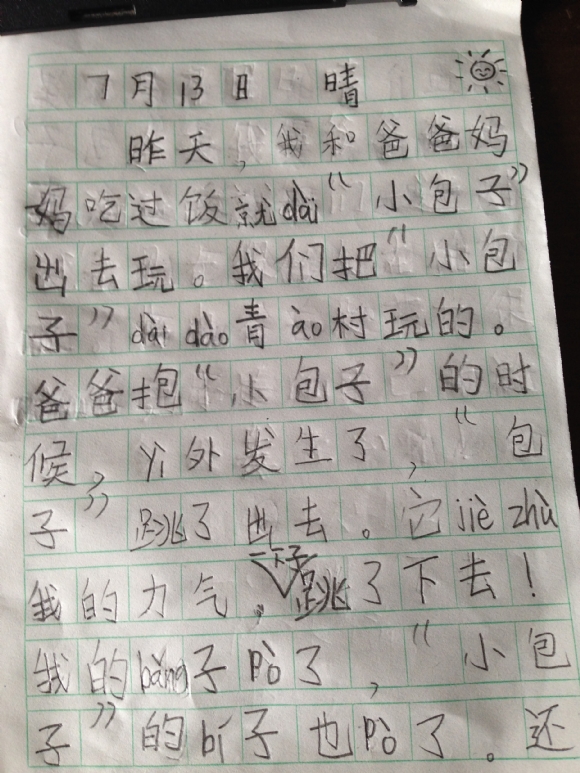 7月13日 晴
昨天,我和爸爸妈
妈吃过饭就dài“小包子”
出去玩。我们把“小包
子”dài dào青ào村玩的。
爸爸抱“小包子”的时
候,yì外发生了,“包
子”跳了出去。它jiè zhù
我的力气,一下子跳了下去!
我的bàng子pò了,“小包
子”的bí子也pò了。还